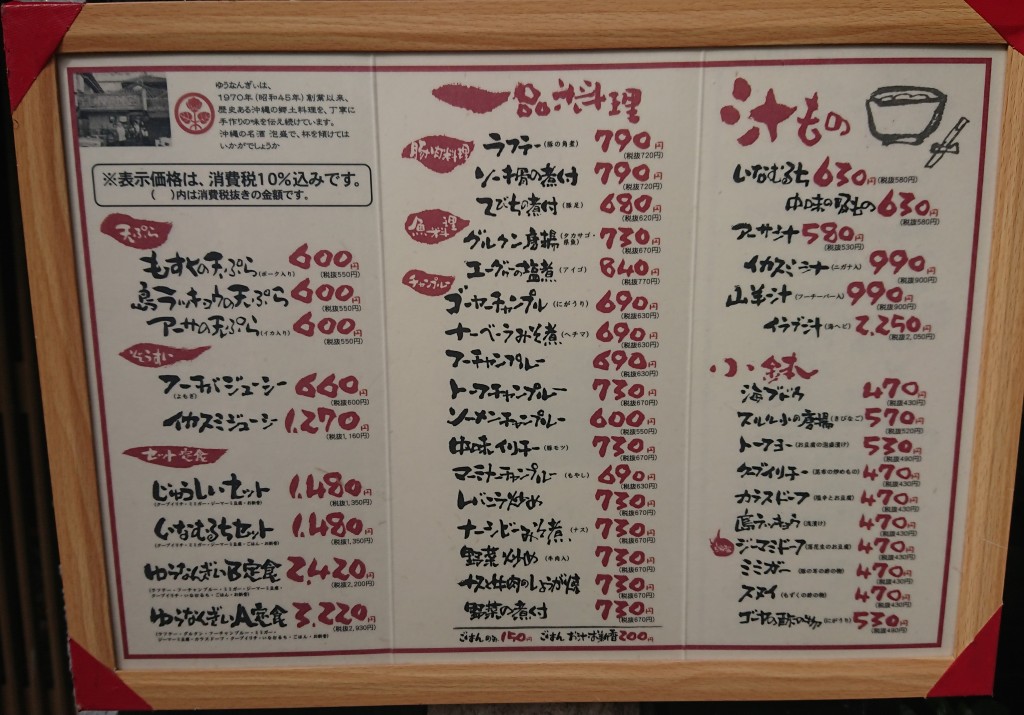 ゆうなんぎいは、
1970年(昭和45年)創業以来、
歴史ある沖縄の郷土料理を、丁寧に
手作りの味を伝え続けています。
沖縄の名酒 泡盛で、杯を傾けては
いかがでしょうか
※表示価格は、消費税10%込みです。
( )内は消費税抜きの金額です。
天ぷら
もずくの天ぷら(ポーク入り) 600円(税抜550円)
島ラッキョウの天ぷら 600円(税抜550円)
アーサの天ぷら(イカ入り) 600円(税抜550円)
ぞうすい
フーチバジューシー(よもぎ) 660円(税抜600円)
イカスミジューシー 1,270円(税抜1,160円)
セット定食
じゅうしいセット 1,480円(税抜1,350円)
いなむるちセット 1,480円(税抜1,350円)
ゆうなんぎいB定食 2,420円(税抜2,200円)
ゆうなんぎいA定食 3,220円(税抜2,930円)
一品料理
豚肉料理
ラフテー(豚の角煮) 790円(税抜720円)
ソーキ骨の煮付 790円(税抜720円)
てびちの煮付(豚足) 680円(税抜620円)
魚料理
グルクン唐揚(タカサゴ・県魚) 730円(税抜670円)
エーグヮーの塩煮(アイゴ) 840円(税抜770円)
チャンプルー
ゴーヤーチャンプル(にがうり) 690円(税抜630円)
ナーベーラみそ煮(ヘチマ) 690円(税抜630円)
フーチャンプルー 690円(税抜630円)
トーフチャンプルー 730円(税抜670円)
ソーメンチャンプルー 600円(税抜550円)
中味イリチー(豚モツ) 730円(税抜670円)
マーミナーチャンプルー(もやし) 690円(税抜630円)
レバニラ炒め 730円(税抜670円)
ナーシビーみそ煮(ナス) 730円(税抜670円)
野菜炒め(牛肉入) 730円(税抜670円)
ナスと牛肉のしょうが焼 730円(税抜670円)
野菜の煮付 730円(税抜670円)
ごはんのみ 150円 ごはん お汁 お新香 200円
汁もの
いなむるち 630円(税抜580円)
中味の吸もの 630円(税抜580円)
アーサ汁 580円(税抜530円)
イカスミ汁(ニガナ入) 990円(税抜900円)
山羊汁(フーチーバー入) 990円(税抜900円)
イラブ汁(海ヘビ) 2,250円(税抜2,050円)
小鉢
海ブドウ 470円(税抜430円)
スルル小の唐揚(きびなご) 570円(税抜520円)
トーフヨー(お豆腐の泡盛漬け) 530円(税抜490円)
クーブイリチー(昆布の炒めもの) 470円(税抜430円)
カラスドーフ(塩辛とお豆腐) 470円(税抜430円)
島ラッキョウ(浅漬け) 470円(税抜430円)
ジーマミドーフ(落花生のお豆腐) 470円(税抜430円)
ミミガー(豚の耳の酢の物) 470円(税抜430円)
スヌイ(もずくの酢の物) 470円(税抜430円)
ゴーヤの酢のもの(にがうり) 530円(税抜490円)